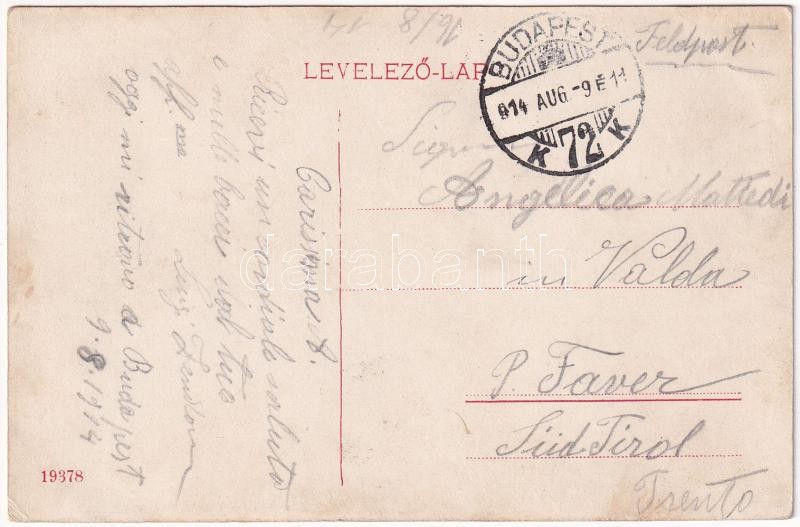 16/8 14
LEVELEZŐ-LAP
BUDAPEST
914 AUG -9 É 11
K 72 K
Feldpost.
Carissima A.
Ricevi un cordiale saluto
e mille baci dal tuo
aff. mo Luigi
oggi mi ritrovo a Budapest
9.8.1914
Angelica Mattedi
in Valda
P. Faver
Süd Tirol
Trento
19378
darabanth